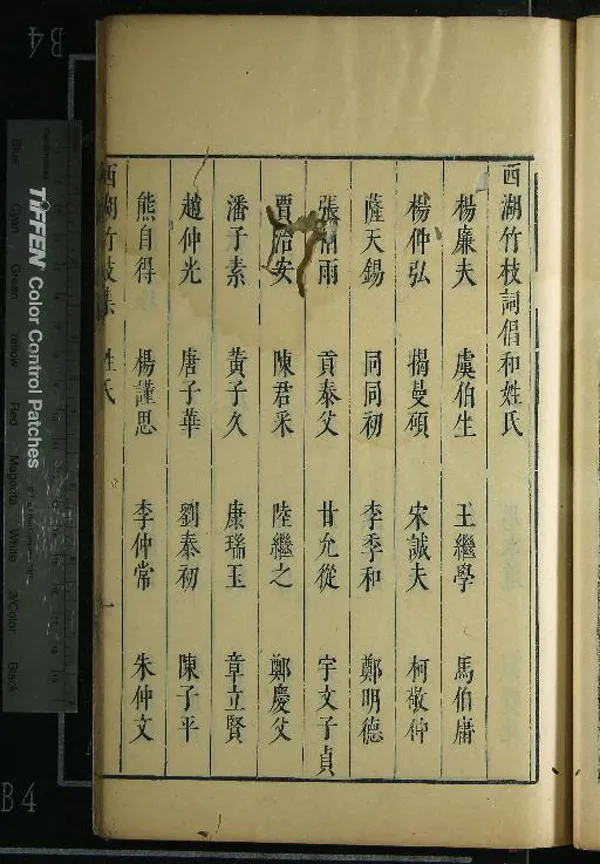 西湖竹枝詞倡和姓氏
楊廉夫 虞伯生 王繼學 馬伯庸
楊仲弘 揭曼碩 宋誠夫 柯敬仲
薩天錫 同同初 李季和 鄭明德
張雨 貢泰父 甘允從 宇文子貞
賈治安 陳君采 陸繼之 鄭慶父
潘子素 黃子久 康瑞玉 章立賢
趙仲光 唐子華 劉泰初 陳子平
熊自得 楊謹思 李仲常 朱仲文
西湖竹枝集 姓氏 一
B4
B4
TIFFEN Color Control Patches
Blue Cyan Green Yellow Red Magenta White 3/Color Black